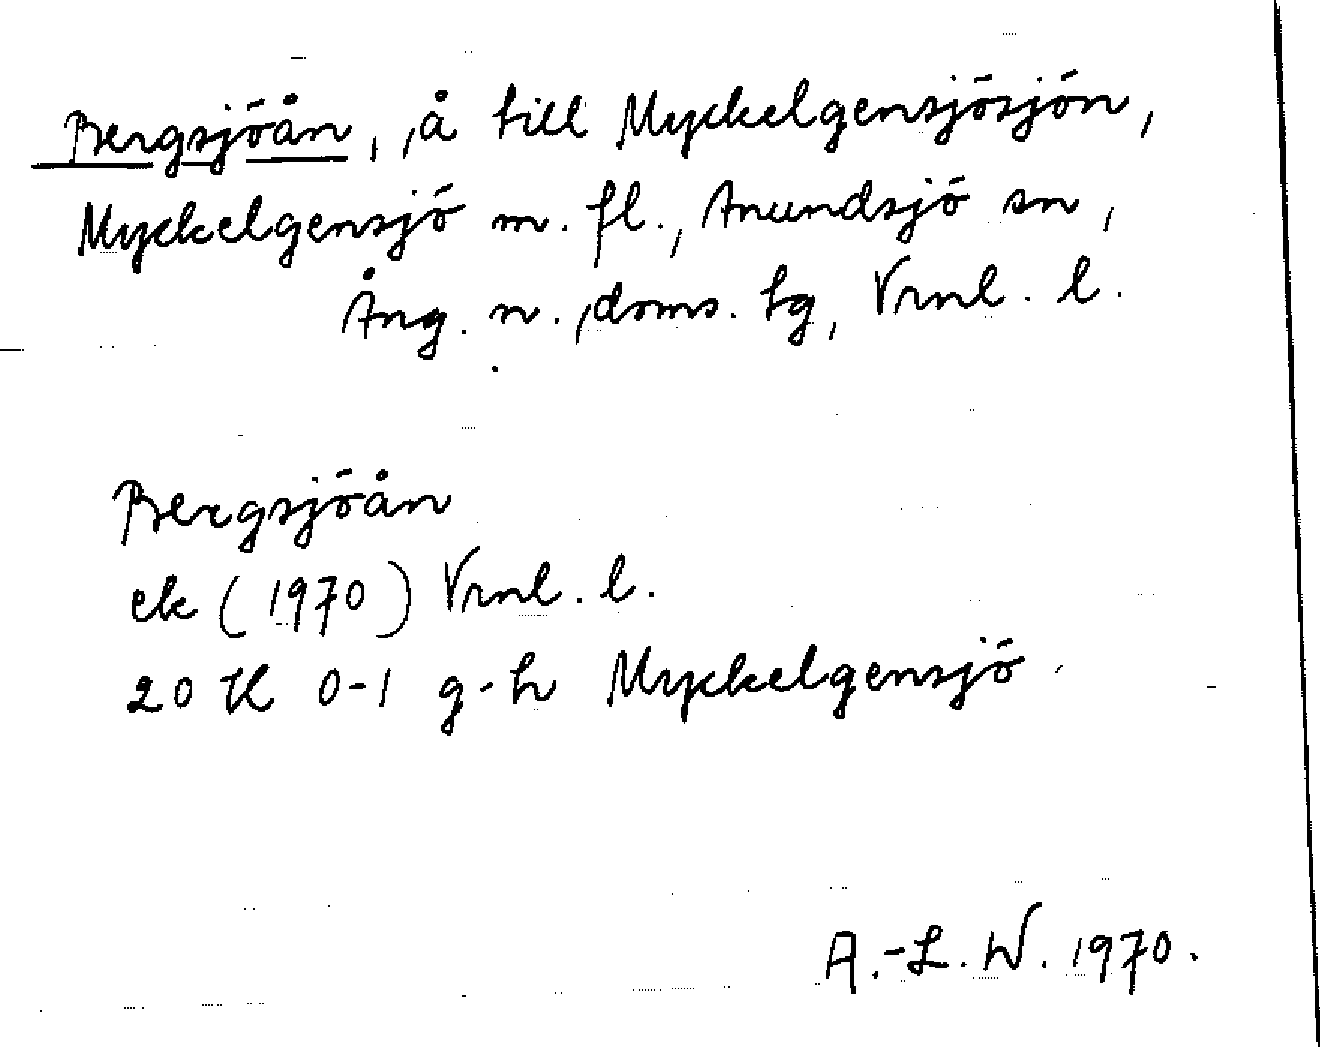 Bergsjöån, å till Myckelgensjösjön,
Myckelgensjö m. fl., Anundsjö sn,
Ång. n. doms. tg, Vrnl. l.
Bergsjöån
ek (1970) Vrnl. l.
20 H 0-1 g-h Myckelgensjö
A.-L. W. 1970.